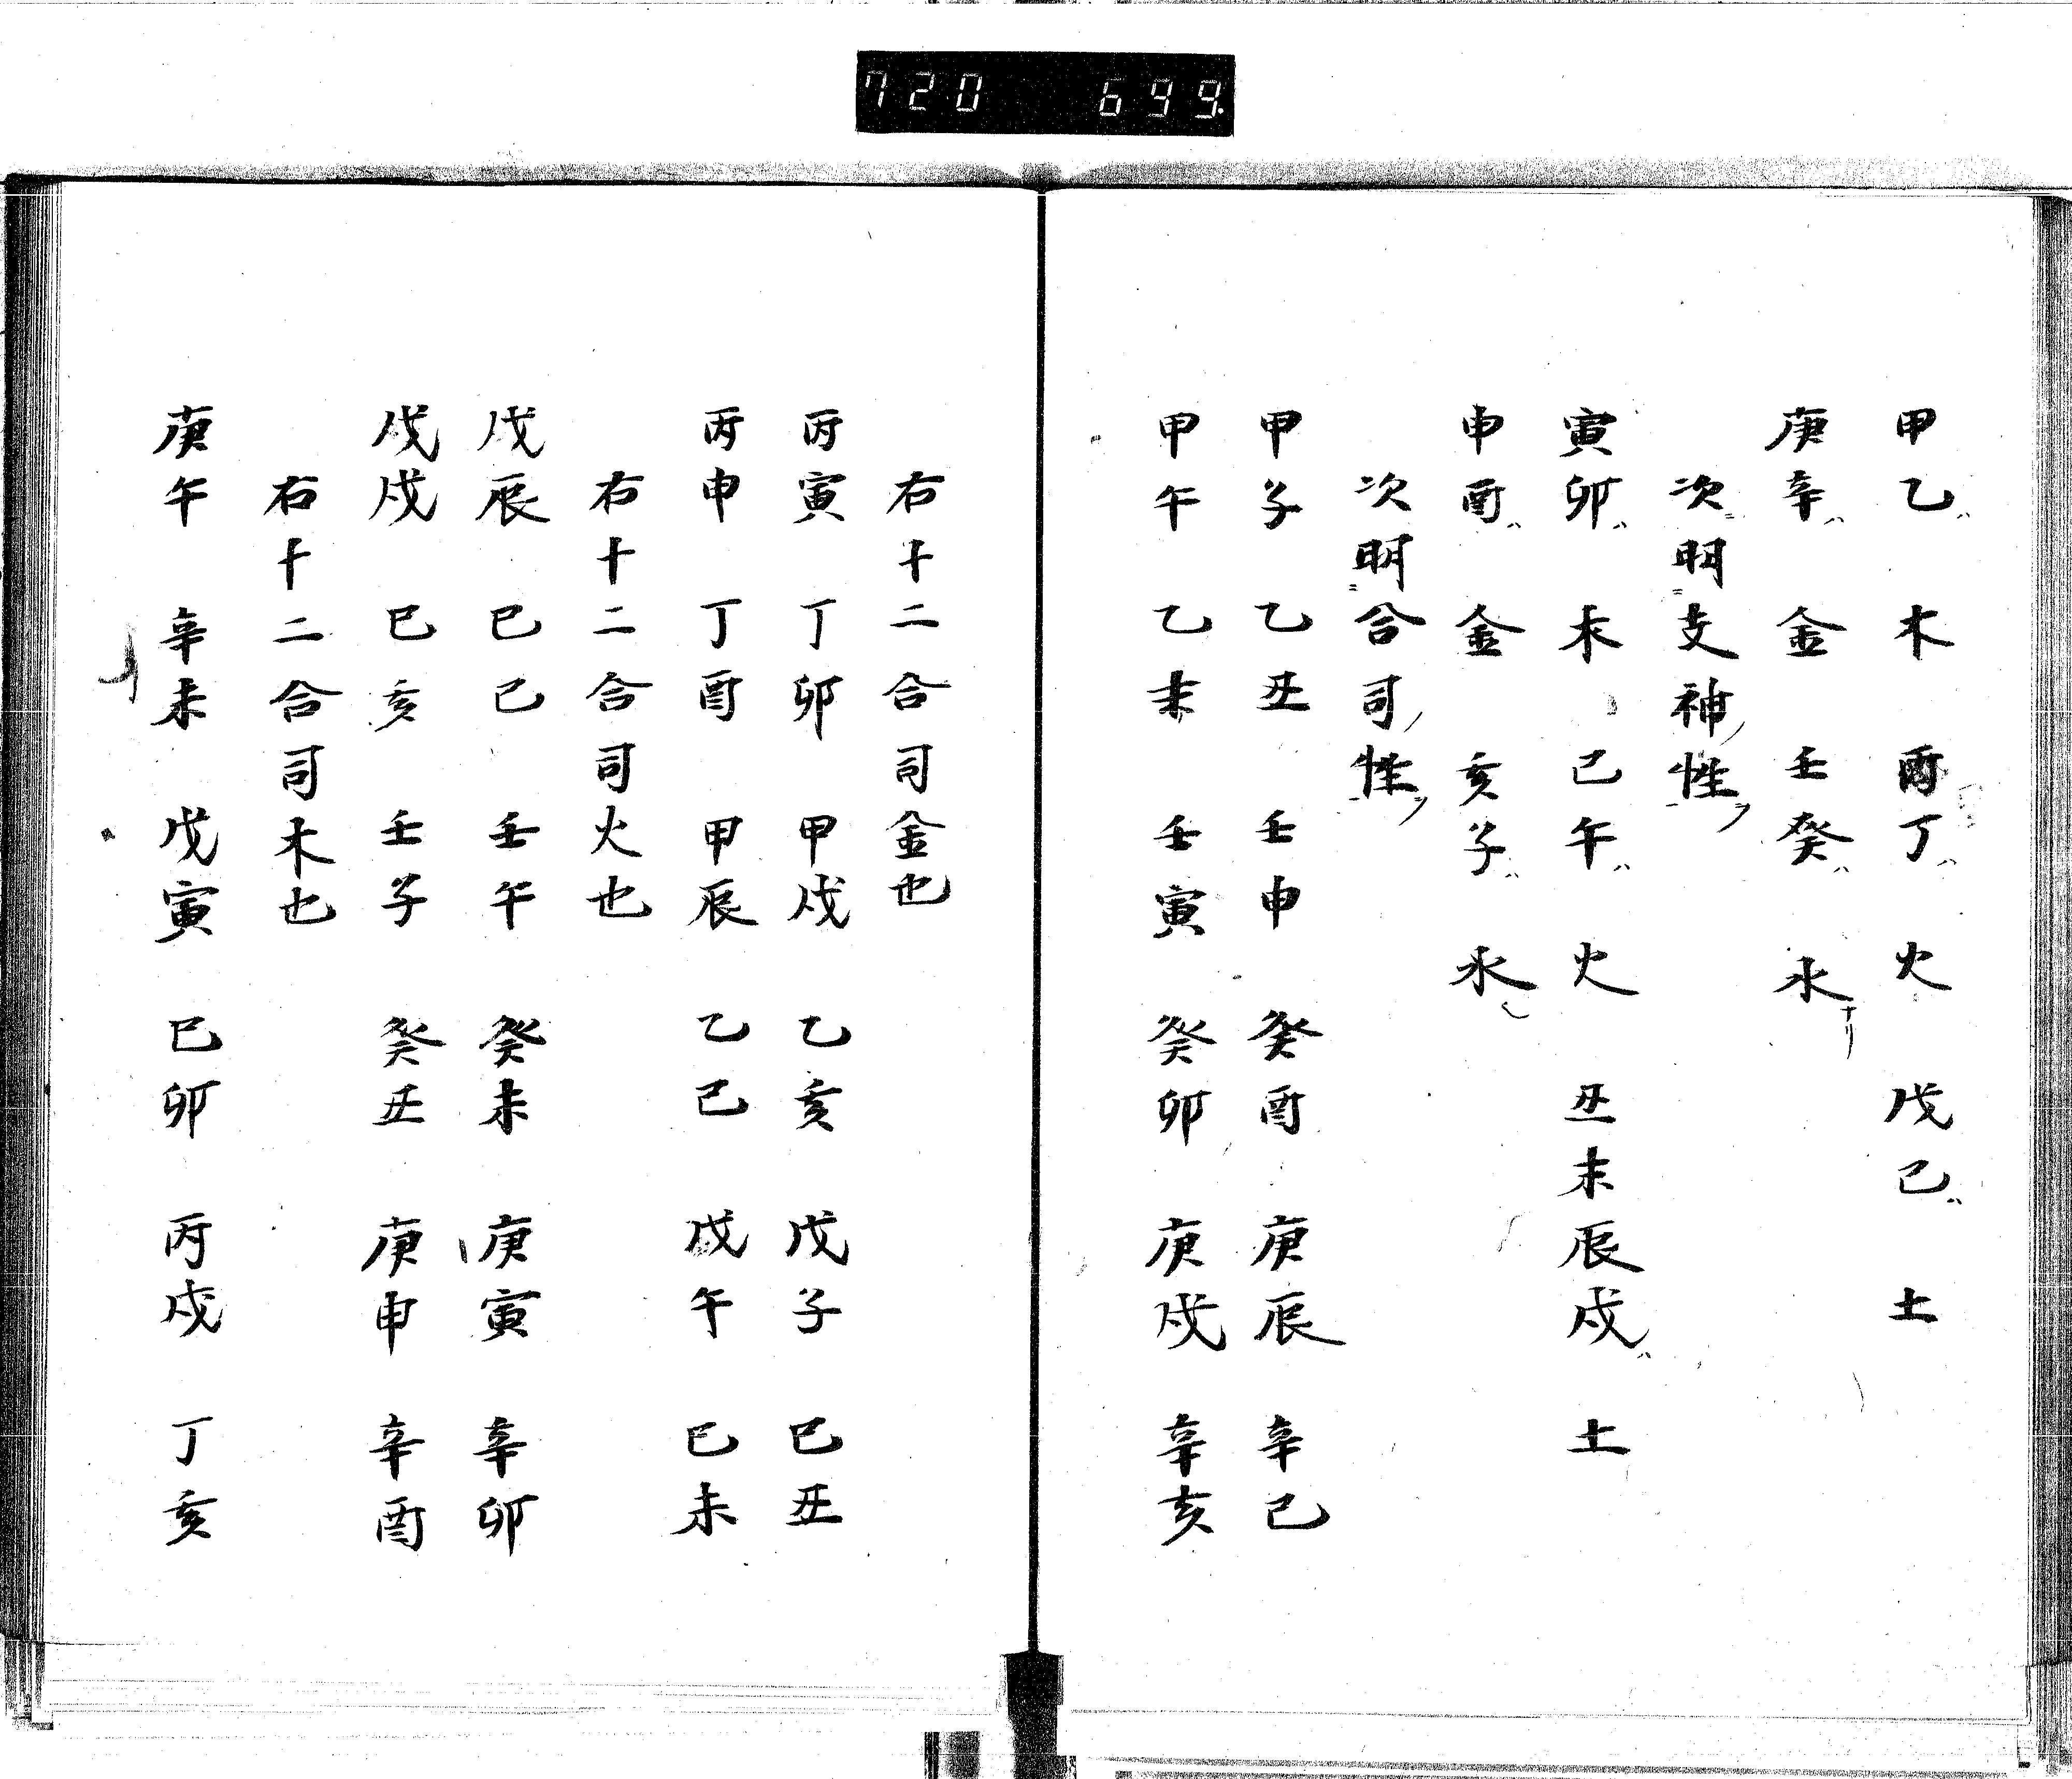 720 699.
甲乙ハ 木 丙丁ハ 火 戊己ハ 土
庚辛ハ 金 壬癸ハ 水ナリ
次ニ明ニ支神ノ性ヲ
寅卯ハ 木 巳午ハ 火 丑未辰戌ハ 土
申酉ハ 金 亥子ハ 水
次明ニ合司ノ性ヲ
甲子 乙丑 壬申 癸酉 庚辰 辛巳
甲午 乙未 壬寅 癸卯 庚戌 辛亥
右十二合司金也
丙寅 丁卯 甲戌 乙亥 戊子 己丑
丙申 丁酉 甲辰 乙巳 戊午 己未
右十二合司火也
戊辰 己巳 壬午 癸未 庚寅 辛卯
戊戌 己亥 壬子 癸丑 庚申 辛酉
右十二合司木也
庚午 辛未 戊寅 己卯 丙戌 丁亥